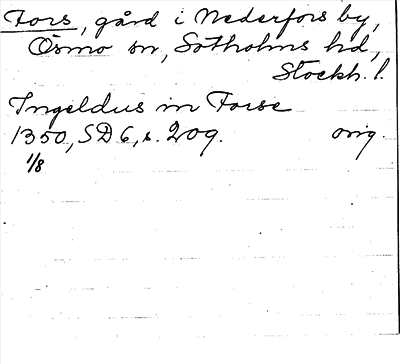 Fors, gård i Nederfors by,
Ösmo sn, Sotholms hd,
Stockh. l.
Ingeldus in Forse
1350, SD 6, s. 209. orig.
1/8